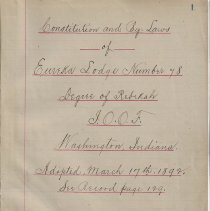 1
Constitution and By Laws
of
Eureka Lodge Number 78
Degree of Rebekah
I.O.O.F.
Washington, Indiana.
Adopted March 17th 1892.
See Record page 129.